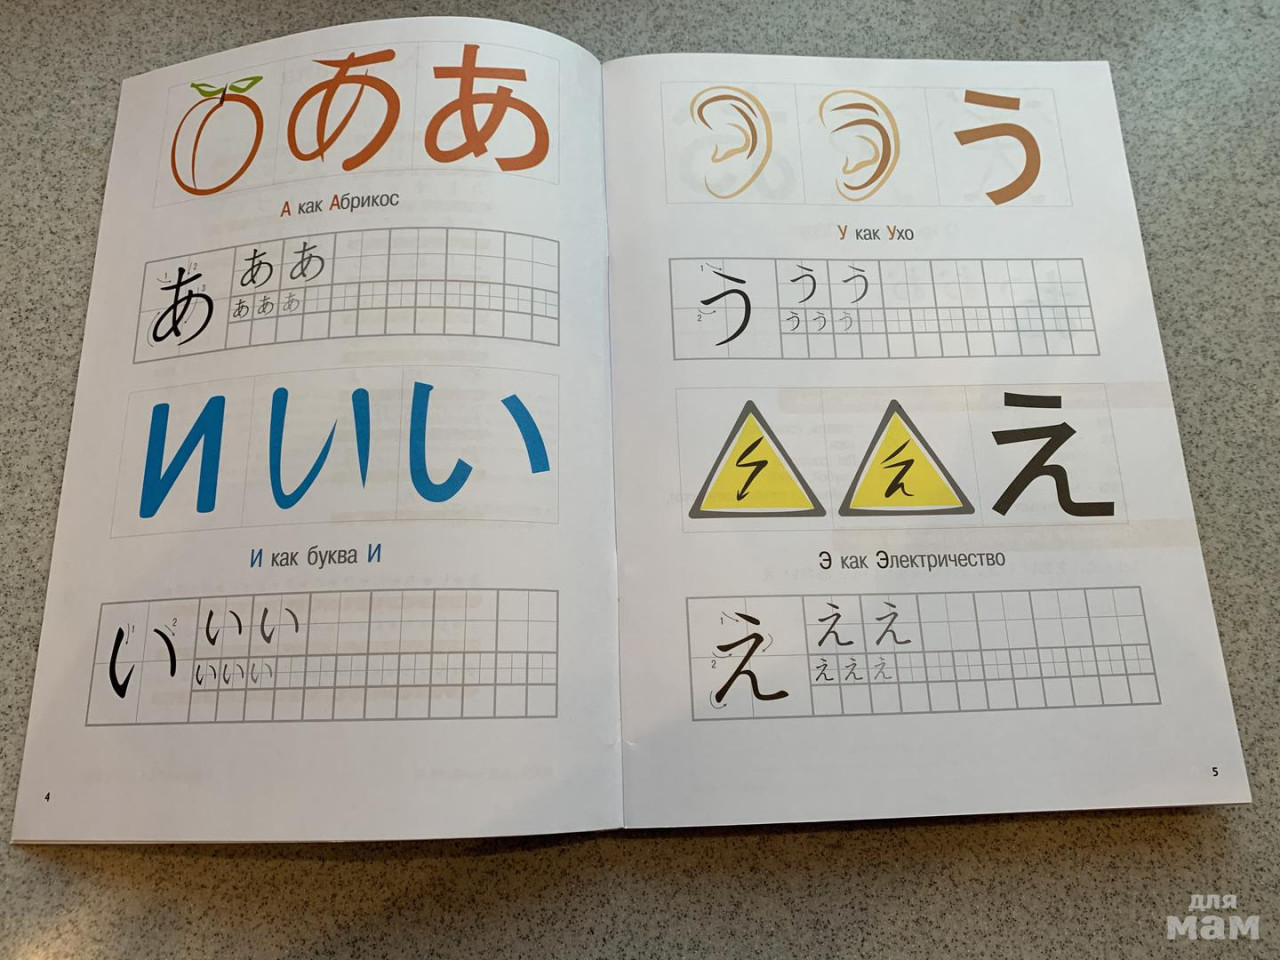 ああ
А как Абрикос
あ 1 2 3 ああ
あああ
иいい
И как буква И
い 1 2 いい
いいい
4
う
У как Ухо
う 1 2 うう
ううう
え
Э как Электричество
え 1 2 ええ
えええ
5
для
мам